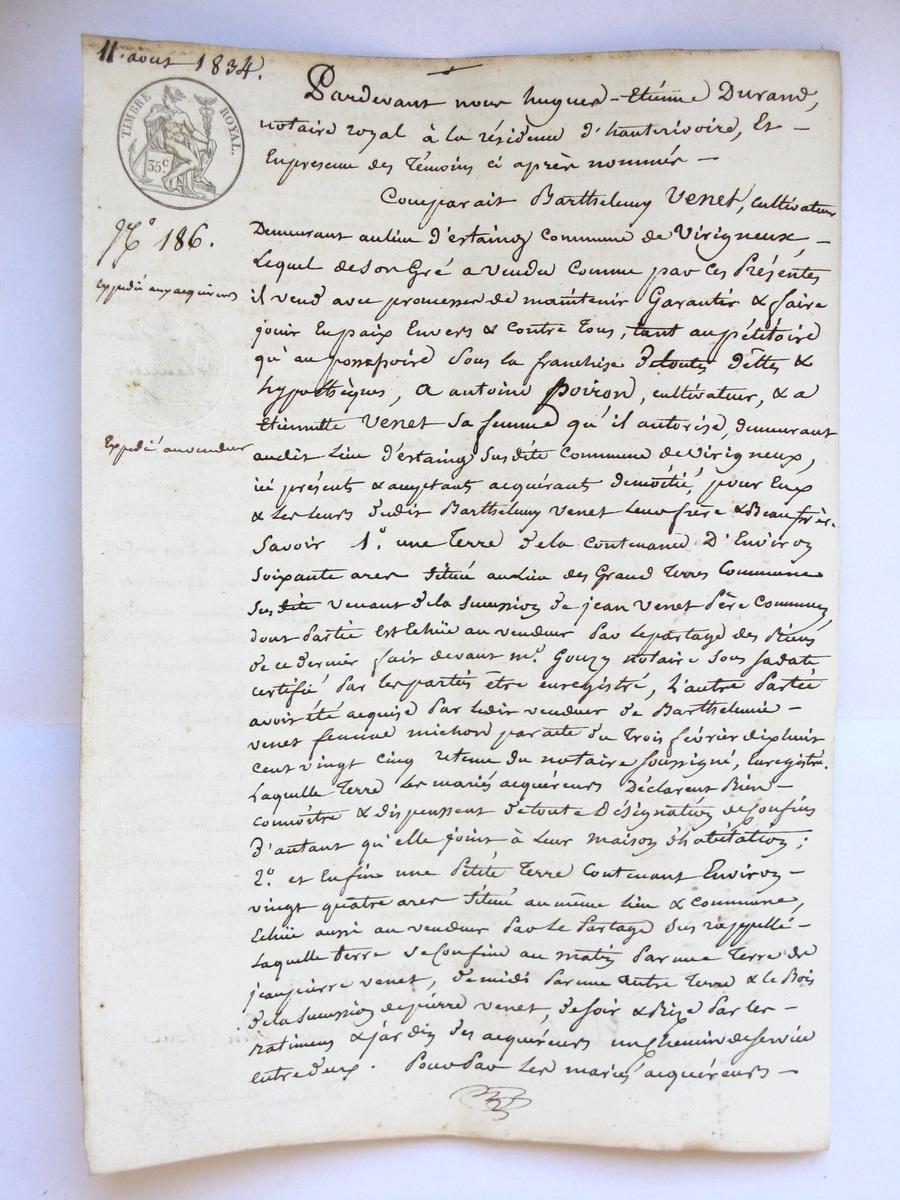 11. aout 1834.
TIMBRE ROYAL.
35 c.
N.º 186.
Expedié aux acquereurs
Expedié au vendeur
Pardevant nous hugues-Etienne Durand,
notaire royal à la résidence d'hauterivoire, Et -
En presence des Témoins ci après nommés -
Comparait Barthelemy Venet, cultivateur
Demeurant au lieu d'estaing Commune de Virigneux -
Lequel de son Gré a vendu Comme par Ces Présentes
il vend avec promesse de maintenir Garantir & faire
jouir En paix Envers & Contre Tous, tant au pétitoire
qu'au possessoire sous la franchise De toutes dettes &
hypothèques, a antoine Poiron, cultivateur, & a
Etiennette Venet sa femme qu'il autorise, demeurant
audit Lieu d'estaing susdite Commune de Virigneux,
ici présents & acceptants acquérants de moitié, pour Eux
& Les Leurs dudit Barthelemy Venet Leur frère & Beaufrère.
Savoir 1º. une Terre de la Contenance D'Environ
Soixante ares située au Lieu des Grand Terres Commune
susdite venant de la succession de jean Venet Père Commun,
dont Partie Est Echüe au vendeur Par Le partage des Biens
de ce dernier fait devant mº. Gouzy notaire sous sa date
certifié Par Les parties être enregistré, L'autre Partie
avoir été acquise Par Ledit vendeur de Barthelemie -
venet femme michon par acte du Trois février dixhuit
cent vingt cinq retenu du notaire soussigné, Enregistré.
Laquelle Terre Les mariés acquéreurs Déclarent Bien -
connoître & dispensent de toute Désignation de Confins
D'autant qu'elle joint à Leur maison d'habitation;
2º. et Enfin une Petite Terre Contenant Environ -
vingt quatre ares située au même Lieu & commune,
Echüe aussi au vendeur Par Le Partage sus rappellé -
Laquelle terre se Confine au matin Par une Terre de
jeanpierre venet, de midi Par une autre Terre & le Bois
de la succession de pierre venet, de soir & Bize Par Les -
Batimens & jardin des acquéreurs un chemin de service
entre deux. Pour Par Les mariés acquéreurs -